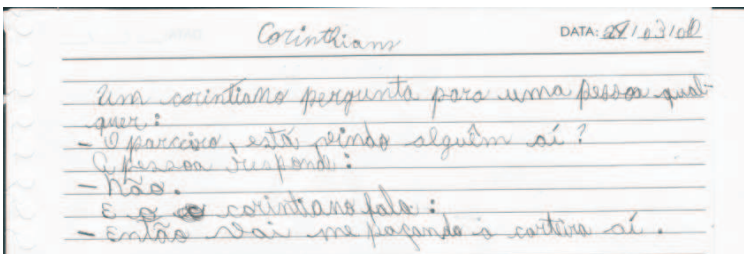 Corinthians
DATA: 28/03/00
Um corintiano pergunta para uma pessoa qual-
quer:
- O parceiro, está vindo alguêm aí?
A pessoa responde:
- Não.
E o corintiano fala:
- Então vai me passando a carteira aí.